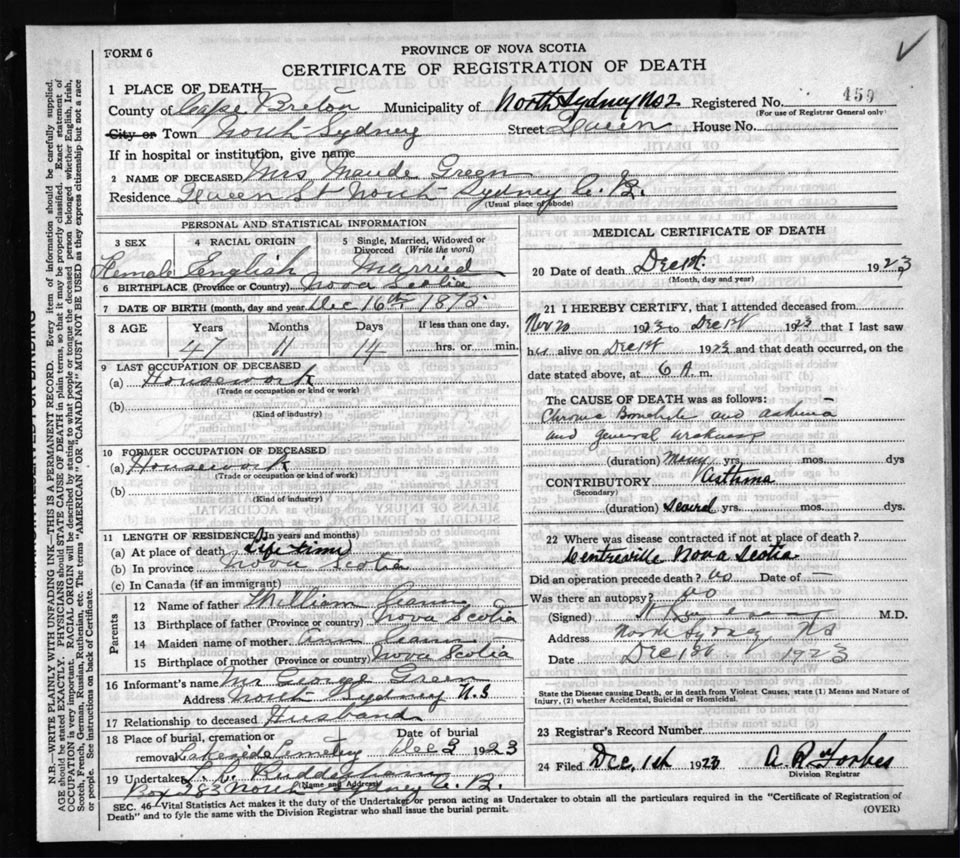 FORM 6
PROVINCE OF NOVA SCOTIA
CERTIFICATE OF REGISTRATION OF DEATH
1 PLACE OF DEATH
County of Cape Breton Municipality of North Sydney No 2 Registered No. 459
(For use of Registrar General only)
City or Town North Sydney Street Queen House No.
If in hospital or institution, give name
2 NAME OF DECEASED Mrs Maude Green
Residence Queen St North Sydney C. B.
(Usual place of abode)
PERSONAL AND STATISTICAL INFORMATION
3 SEX 4 RACIAL ORIGIN 5 Single, Married, Widowed or Divorced (Write the word)
Female English Married
6 BIRTHPLACE (Province or Country) Nova Scotia
7 DATE OF BIRTH (month, day and year) Dec 16th 1875
8 AGE Years Months Days If less than one day,
47 11 14 hrs. or min.
9 LAST OCCUPATION OF DECEASED
(a) Housework
(Trade or occupation or kind of work)
(b)
(Kind of industry)
10 FORMER OCCUPATION OF DECEASED
(a) Housework
(Trade or occupation or kind of work)
(b)
(Kind of industry)
11 LENGTH OF RESIDENCE (in years and months)
(a) At place of death Life time
(b) In province Nova Scotia
(c) In Canada (if an immigrant)
Parents
12 Name of father William
13 Birthplace of father (Province or country) Nova Scotia
14 Maiden name of mother Ann
15 Birthplace of mother (Province or country) Nova Scotia
16 Informant's name Mr George Green
Address North Sydney N. S
17 Relationship to deceased Husband
18 Place of burial, cremation or removal Lakeside Cemetery Date of burial Dec 3 1923
19 Undertaker
(Name and Address)
Box 283 North Sydney C. B.
MEDICAL CERTIFICATE OF DEATH
20 Date of death Dec 1st. 1923
(Month, day and year)
21 I HEREBY CERTIFY, that I attended deceased from
Nov 20 1923 to Dec 1st 1923 that I last saw
her alive on Dec 1st 1923 and that death occurred, on the
date stated above, at 6 A. m.
The CAUSE OF DEATH was as follows:
Chronic Bronchitis and asthma
and general weakness
(duration) Many yrs. mos. dys
CONTRIBUTORY Asthma
(Secondary)
(duration) Several yrs. mos. dys.
22 Where was disease contracted if not at place of death?
Centreville Nova Scotia
Did an operation precede death? No Date of
Was there an autopsy? No
(Signed) M.D.
Address North Sydney NS
Date Dec 1st 1923
State the Disease causing Death, or in death from Violent Causes, state (1) Means and Nature of
Injury, (2) whether Accidental, Suicidal or Homicidal.
23 Registrar's Record Number
24 Filed Dec. 1st 1923 A. R. Forbes
Division Registrar
SEC. 46—Vital Statistics Act makes it the duty of the Undertaker or person acting as Undertaker to obtain all the particulars required in the "Certificate of Registration of
Death" and to fyle the same with the Division Registrar who shall issue the burial permit. (OVER)
N.B.—WRITE PLAINLY WITH UNFADING INK—THIS IS A PERMANENT RECORD. Every item of information should be carefully supplied.
AGE should be stated EXACTLY. PHYSICIANS should STATE CAUSE OF DEATH in plain terms, so that it may be properly classified. Exact statement of
OCCUPATION is very important. RACIAL ORIGIN will be described by stating to what people or tongue the deceased person belonged whether English, Irish,
Scotch, French, German, Russian, Ruthenian, etc. The terms "AMERICAN" OR "CANADIAN" MUST NOT BE USED as they express citizenship but not a race
or people. See instructions on back of Certificate.